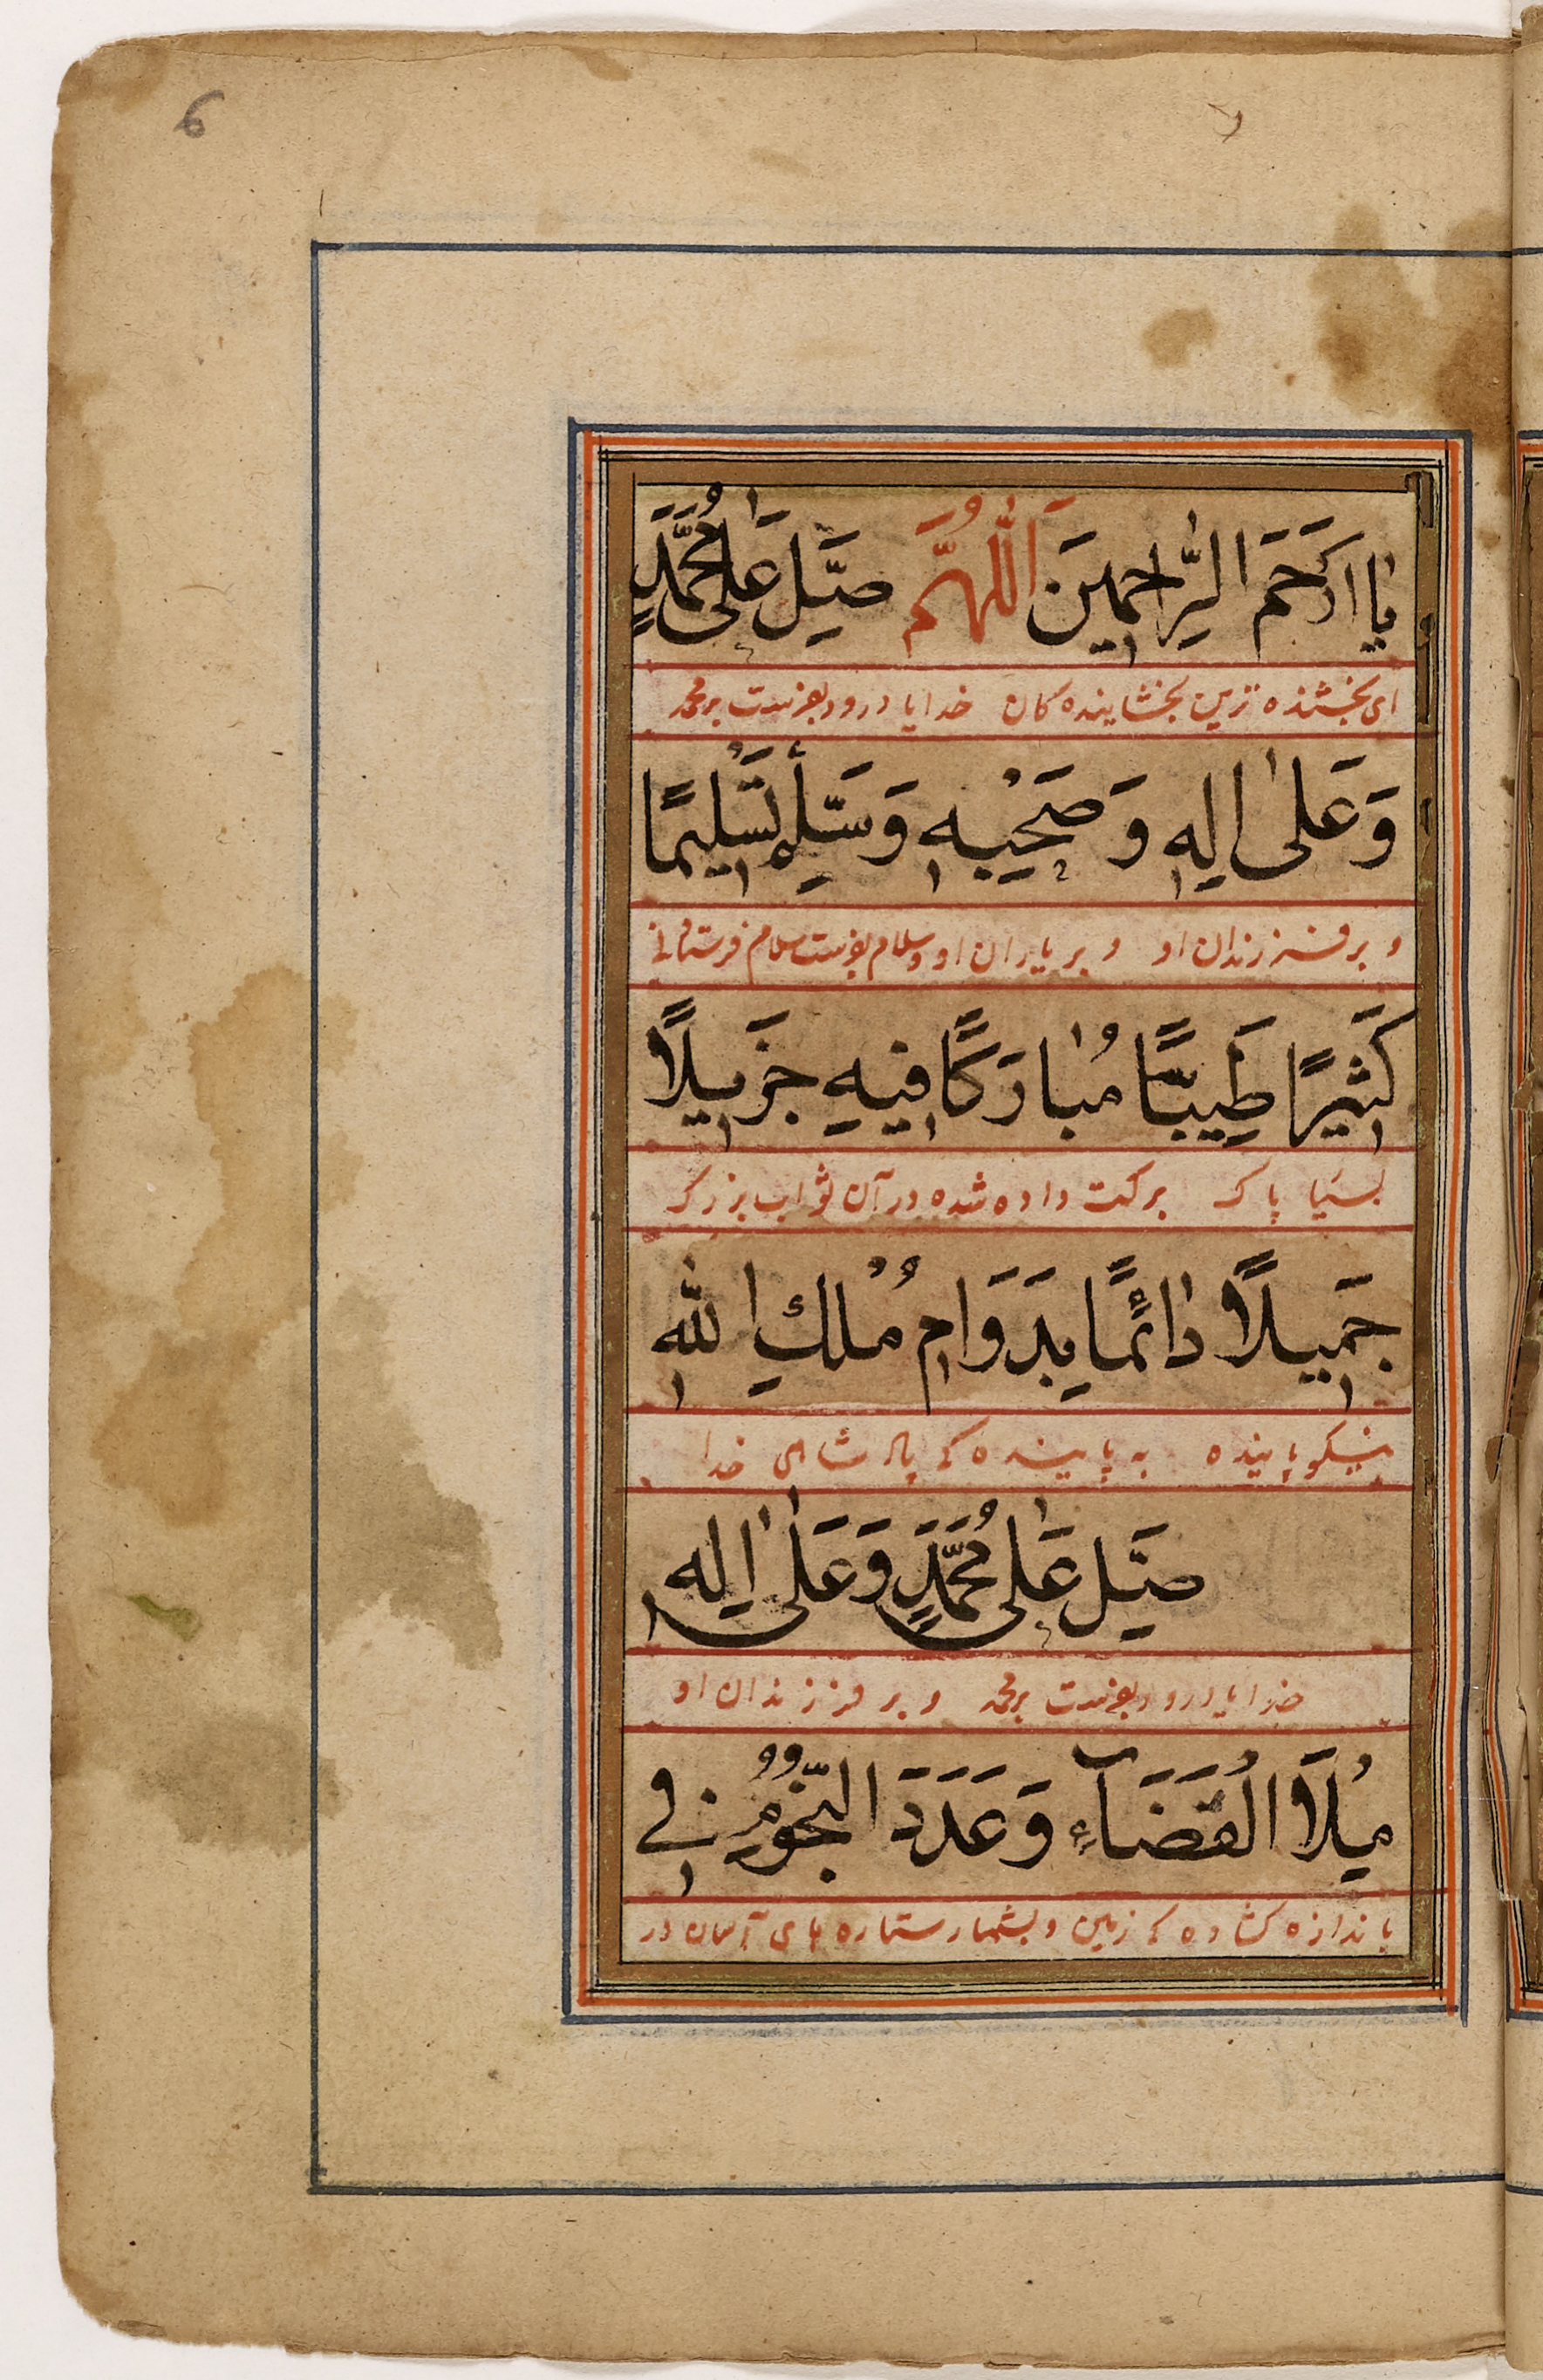 6
يَا اَرْحَمَ الرَّاحِمِينَ اَللّٰهُمَّ صَلِّ عَلٰى مُحَمَّدٍ
ای بخشنده ترین بخشاینده کان خدایا درود بفرست بر محمد
وَعَلٰى اٰلِهٖ وَصَحْبِهٖ وَسَلِّمْ تَسْلِيمًا
و بر فرزندان او و بر یاران او و سلام بفرست سلام فرستادنی
كَثِيرًا طَيِّبًا مُبَارَكًا فِيهِ جَزِيلًا
بسیا پاک برکت داده شده در آن ثواب بزرک
جَمِيلًا دَائِمًا بِدَوَامِ مُلْكِ اللهِ
نیکو پاینده به پاینده کی پادشاهی خدا
صَلِّ عَلٰى مُحَمَّدٍ وَعَلٰى اٰلِهٖ
خدایا درود بفرست بر محمد و بر فرزندان او
مِلَأَ الْفَضَآءِ وَعَدَدَ النُّجُومِ فِي
باندازه کشاده کی زمین و بشمار ستاره های آسمان در